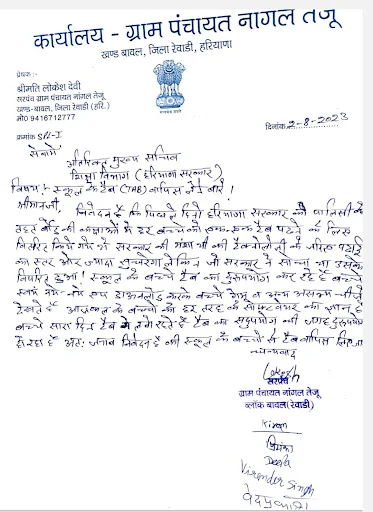 कार्यालय - ग्राम पंचायत नांगल तेजू
खण्ड बावल, जिला रेवाडी, हरियाणा
प्रेषक :-
श्रीमति लोकेश देवी
सरपंच ग्राम पंचायत नांगल तेजू
खण्ड-बावल, जिला रेवाडी (हरि.)
मो0 9416712777
क्रमांक SPL-I
दिनांक 2-8-2023
सेवामें
अतिरिक्त मुख्य सचिव
शिक्षा विभाग (हरियाणा सरकार)
विषय :- स्कूल के टैब (TAB) वापिस लेने बारे।
श्रीमानजी,
निवेदन है कि पिछले दिनो हरियाणा सरकार की पालिसी के
तहत बोर्ड की कक्षाओं में हर बच्चे को एक-एक टैब पढने के लिए
वितरित किये गये थे सरकार की मंशा थी की टैक्नोलोजी के जरिए पढाई
का स्तर और ज्यादा सुधरेगा लेकिन जो सरकार ने सोचा था उसके
विपरित हुआ। स्कूल के बच्चे टैब का दुरुपयोग कर रहे है बच्चे
नये-नये एप डाऊनलोड करके बच्चे गेम व अन्य असभ्य चीजे
देखते है आजकल के बच्चों को हर तरह के सोफ्टवेयर का ज्ञान है
बच्चे सारा दिन टैब में लगे रहते है टैब का सदुपयोग की जगह दुरुपयोग
हो रहा है अतः जनाब निवेदन है की स्कूल के बच्चों से टैब वापिस लिए जा
धन्यवाद
Lokesh
सरपंच
ग्राम पंचायत नांगल तेजू
ब्लॉक बावल (रेवाडी)
Kiran
प्रियंका
Deepa
Virender Singh
वेदप्रकाश